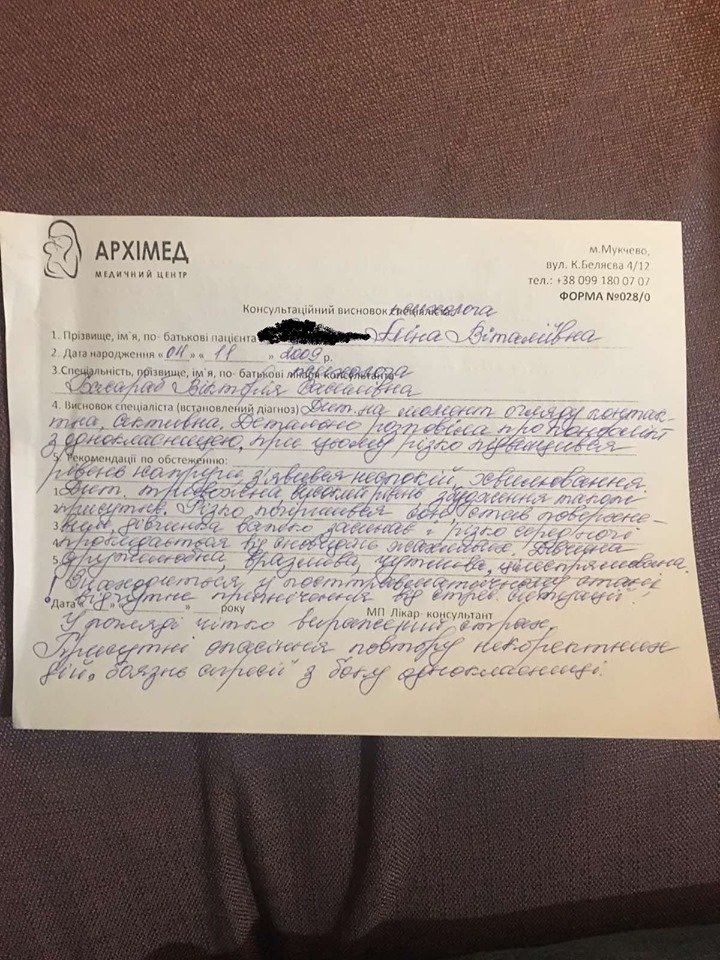 АРХІМЕД
МЕДИЧНИЙ ЦЕНТР
м.Мукчево,
вул. К.Беляєва 4/12
тел.: +38 099 180 07 07
ФОРМА №028/0
Консультаційний висновок спеціаліста психолога
1. Прізвище, ім`я, по- батькові пацієнта Аліна Віталіївна
2. Дата народження « 04 » « 11 » 2009 р.
3.Спеціальність, прізвище, ім`я, по- батькові лікаря консультанта психолога
Вікторія Василівна
4. Висновок спеціаліста (встановлений діагноз) Дит. на момент огляду контак-
тна, активна, Детально розповіла про конфлікт
з однокласницею, при цьому різко підвищився
5. Рекомендації по обстеженню:
рівень напруги з'явився неспокій, хвилювання
1. Дит. тривожна високий рівень збудження також
присутнє. Різко погіршився сон, став поверхне-
3. вим, дівчинка важко засинає і різко серед ночі
4. прокидається від сновидінь жахливих. Дівчина
5. дружелюбна, вразлива, чутлива, цілеспрямована.
Знаходиться у посттравматичному стані,
відчутне пригнічення від стрес. ситуації.
Дата « » року МП Лікар- консультант
У погляді чітко виражений страх,
Присутні опасіння повтору некоректних
дій, "боязнь агресії" з боку однокласниці.